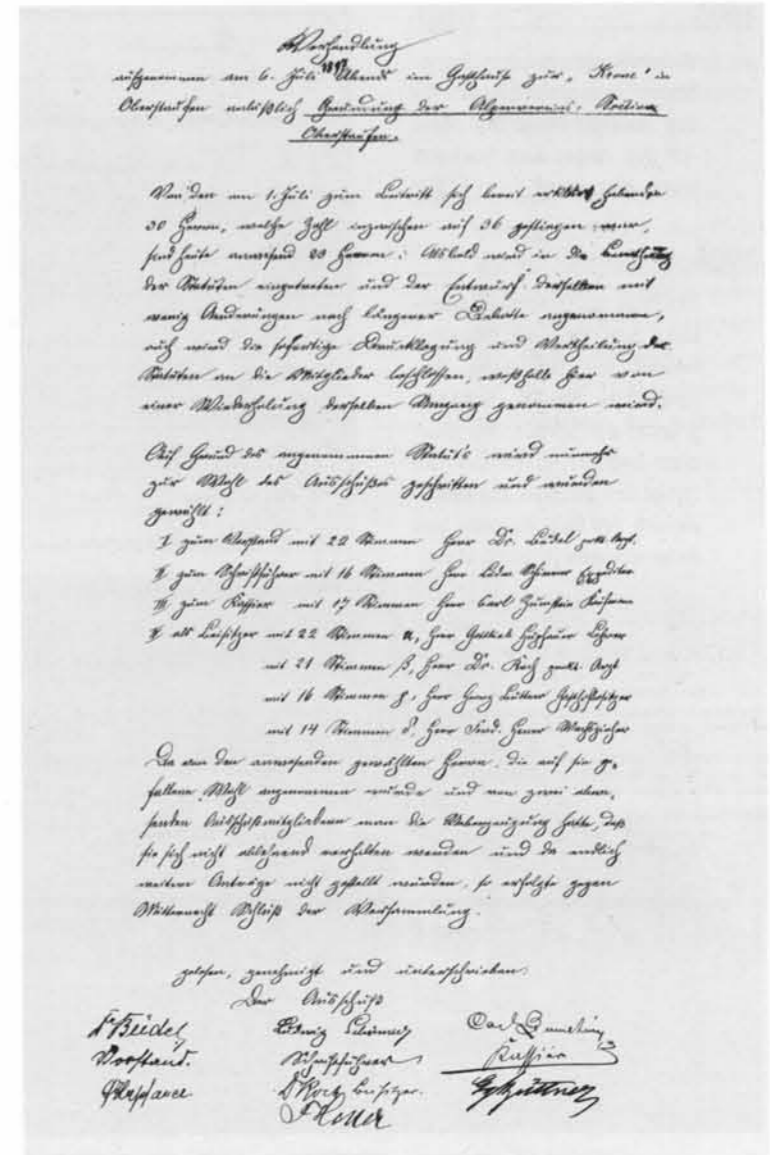 Verhandlung
aufgenommen am 6. Juli 1897 Abends im Gasthause zur „Krone“ in
Oberstaufen anläßlich Gründung der Alpenvereins-Section
Oberstaufen.
Von den am 1. Juli zum Beitritt sich bereit erklärt habenden
30 Herrn, welche Zahl inzwischen auf 36 gestiegen war,
sind heute anwesend 23 Herren: Alsbald wird in die Berathung
der Statuten eingetreten und der Entwurf derselben mit
wenig Aenderungen nach längerer Debatte angenommen,
auch wird die sofortige Drucklegung und Vertheilung der
Statuten an die Mitglieder beschlossen, weßhalb hier von
einer Wiederholung derselben Umgang genommen wird.
Auf Grund des angenommenen Statut's wird nunmehr
zur Wahl des Ausschußes geschritten und wurden
gewählt:
I zum Vorstand mit 22 Stimmen Herr Dr. Beidel prakt. Arzt.
II zum Schriftführer mit 16 Stimmen Herr Expeditor
III zum Kassier mit 17 Stimmen Herr Carl Zumstein
als Beisitzer mit 22 Stimmen α, Herr Gottlieb Lehrer
mit 21 Stimmen β, Herr Dr. Koch prakt. Arzt
mit 16 Stimmen γ, Herr Georg Büttner Gasthofbesitzer
mit 14 Stimmen δ, Herr Ferd. Wachszieher
Da von den anwesenden gewählten Herrn, die auf sie ge-
fallene Wahl angenommen wurde und von zwei abwe-
senden Ausschußmitgliedern man die Ueberzeugung hatte, daß
sie sich nicht ablehnend verhalten werden und da endlich
weitere Anträge nicht gestellt wurden, so erfolgte gegen
Mitternacht Schluß der Versammlung.
gelesen, genehmigt und unterschrieben
Der Ausschuß
Dr Beidel Ludwig Carl Zumstein
Vorstand. Schriftführer Kassier
Dr Koch Beisitzer. Gg Büttner